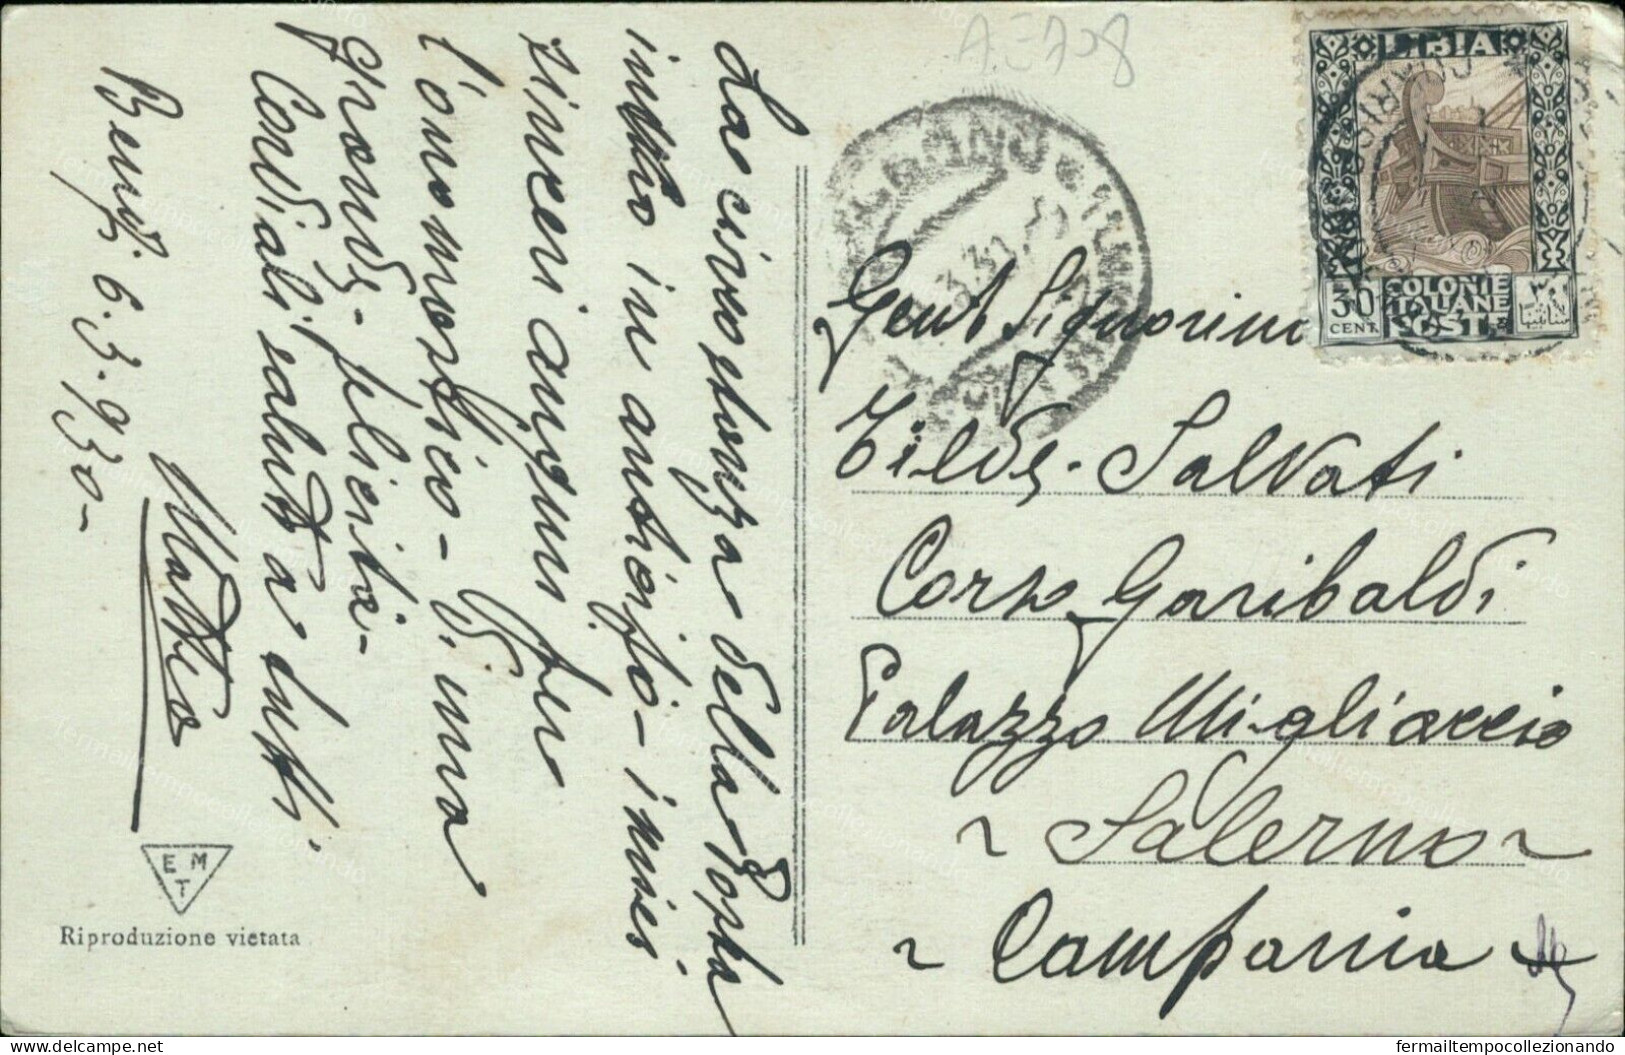 AE708
La circostanza della Posta
invio in anticipo - i miei
sinceri auguri per
l'onomastico - di una
grande - felicità -
Cordiali saluti a tutti.
Beng. 6.3.930 -
Matteo
E M
T
Riproduzione vietata
LIBIA
30
CENT.
COLONIE
ITALIANE
POSTE
Gent Signorina
Tilde - Salvati
Corso Garibaldi
Palazzo Migliaccio
~ Salerno ~
~ Campania
delcampe.net
fermailtempocollezionando